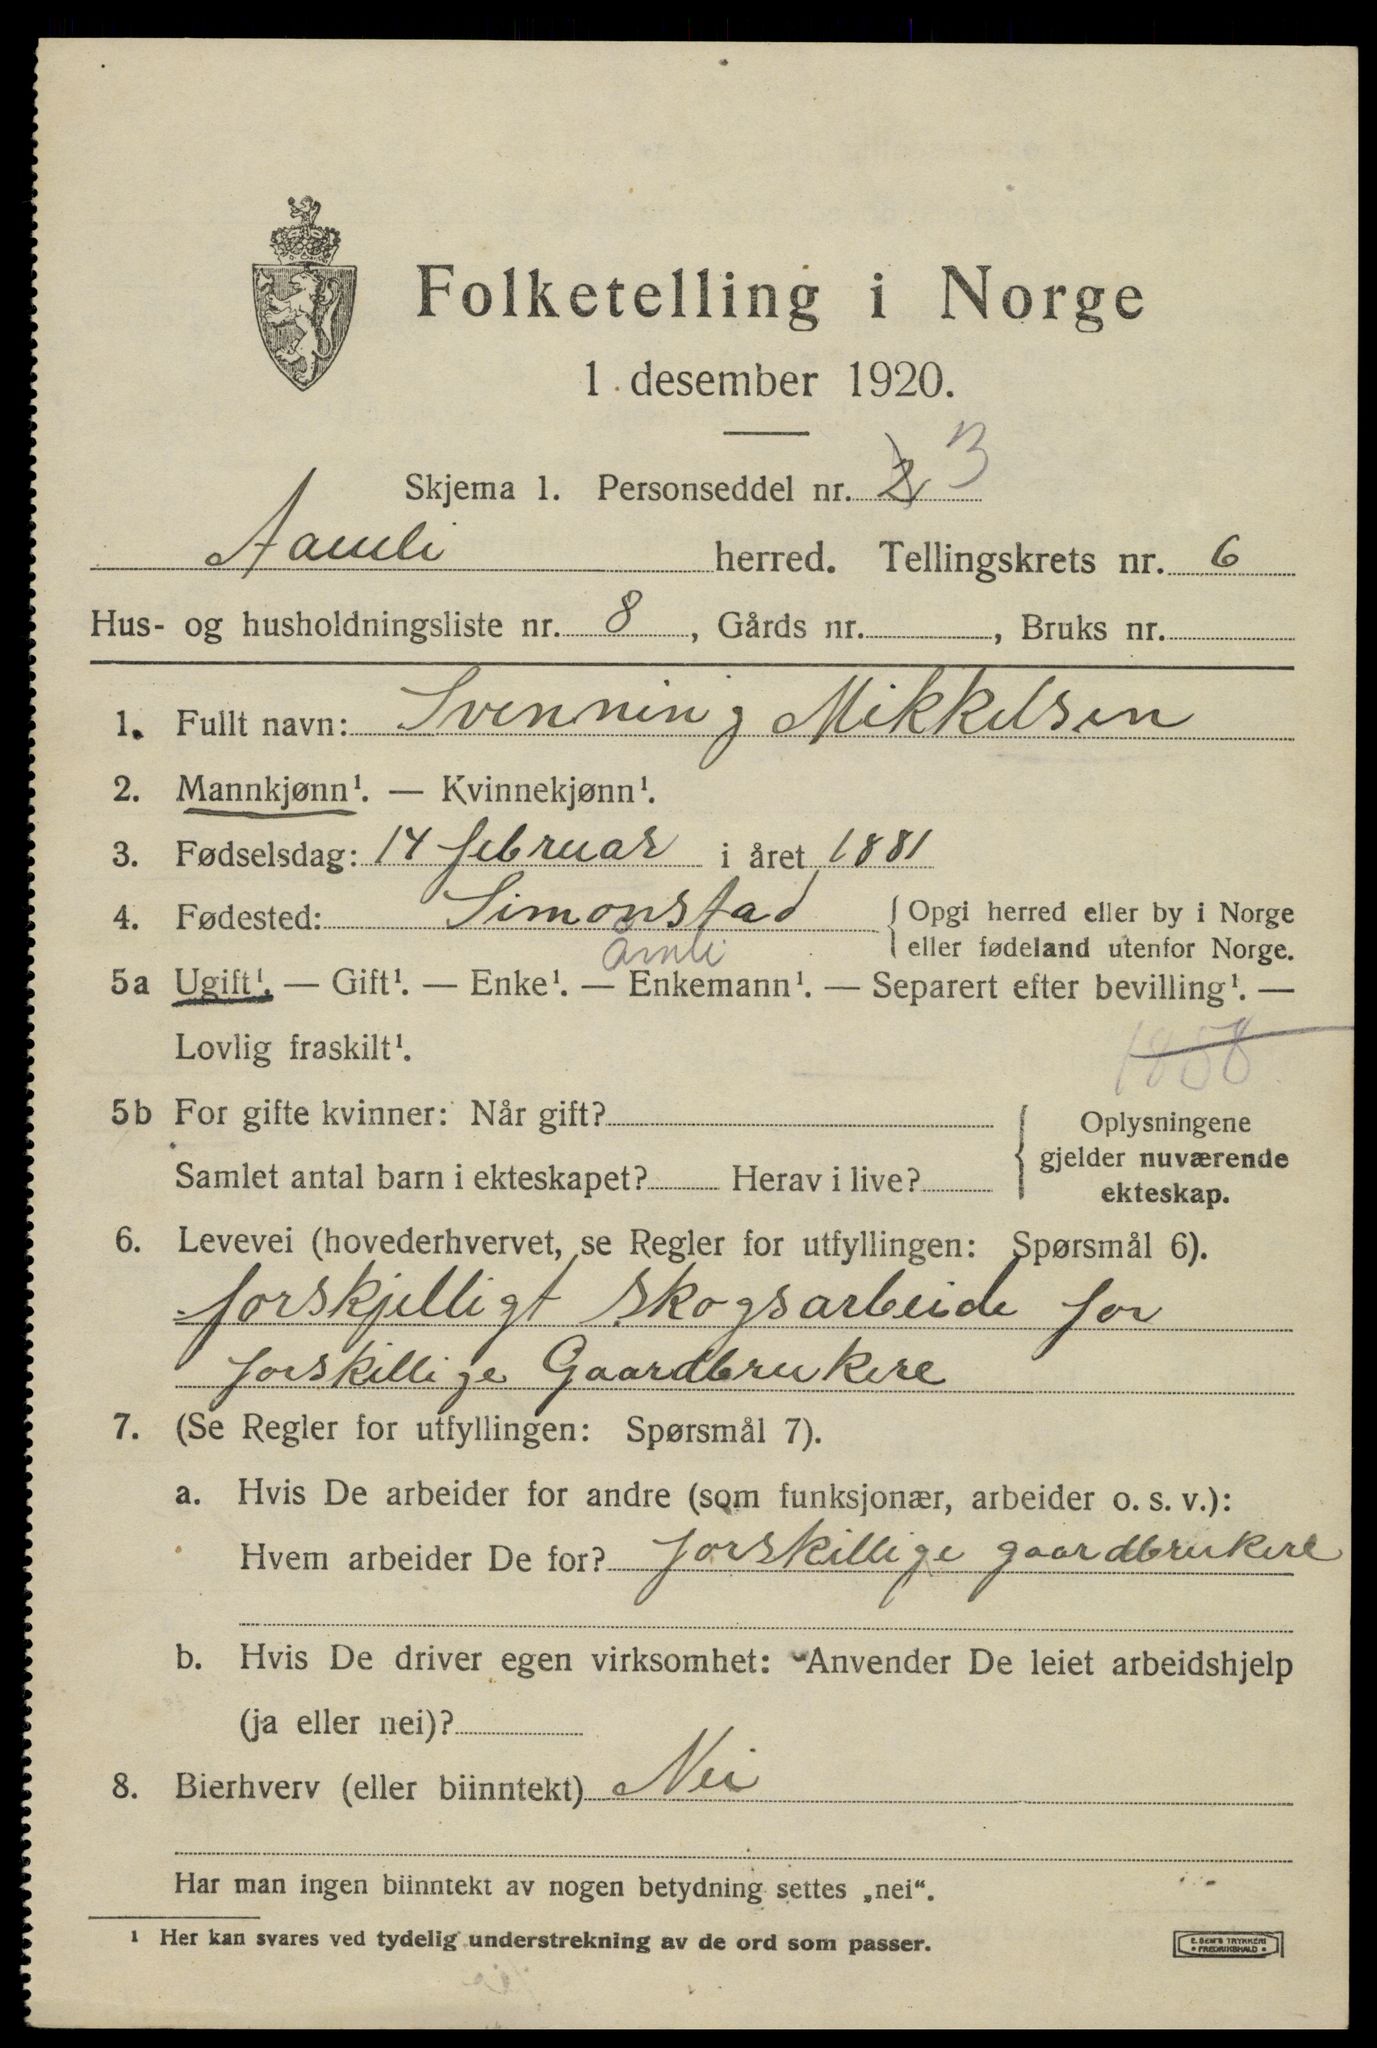 Folketelling i Norge
1. desember 1920.
Skjema 1. Personseddel nr. 2 3
Aamli herred. Tellingskrets nr. 6
Hus- og husholdningsliste nr. 8, Gårds nr. , Bruks nr.
1. Fullt navn: Svenning Mikkelsen
2. Mannkjønn¹. — Kvinnekjønn¹.
3. Fødselsdag: 14 februar i året 1881
4. Fødested: Simonstad { Opgi herred eller by i Norge
eller fødeland utenfor Norge.
Åmli
5a Ugift¹. — Gift¹. — Enke¹. — Enkemann¹. — Separert efter bevilling¹. —
Lovlig fraskilt¹.
1858
5b For gifte kvinner: Når gift? { Oplysningene
gjelder nuværende
Samlet antal barn i ekteskapet? Herav i live?
ekteskap.
6. Levevei (hovederhvervet, se Regler for utfyllingen: Spørsmål 6).
forskjelligt skogsarbeide for
forskillige Gaardbrukere
7. (Se Regler for utfyllingen: Spørsmål 7).
a. Hvis De arbeider for andre (som funksjonær, arbeider o. s. v.):
Hvem arbeider De for? forskillige gaardbrukere
b. Hvis De driver egen virksomhet: Anvender De leiet arbeidshjelp
(ja eller nei)?
8. Bierhverv (eller biinntekt) Nei
Har man ingen biinntekt av nogen betydning settes „nei“.
¹ Her kan svares ved tydelig understrekning av de ord som passer.
E. SEM'S TRYKKERI
• FREDRIKSHALD •